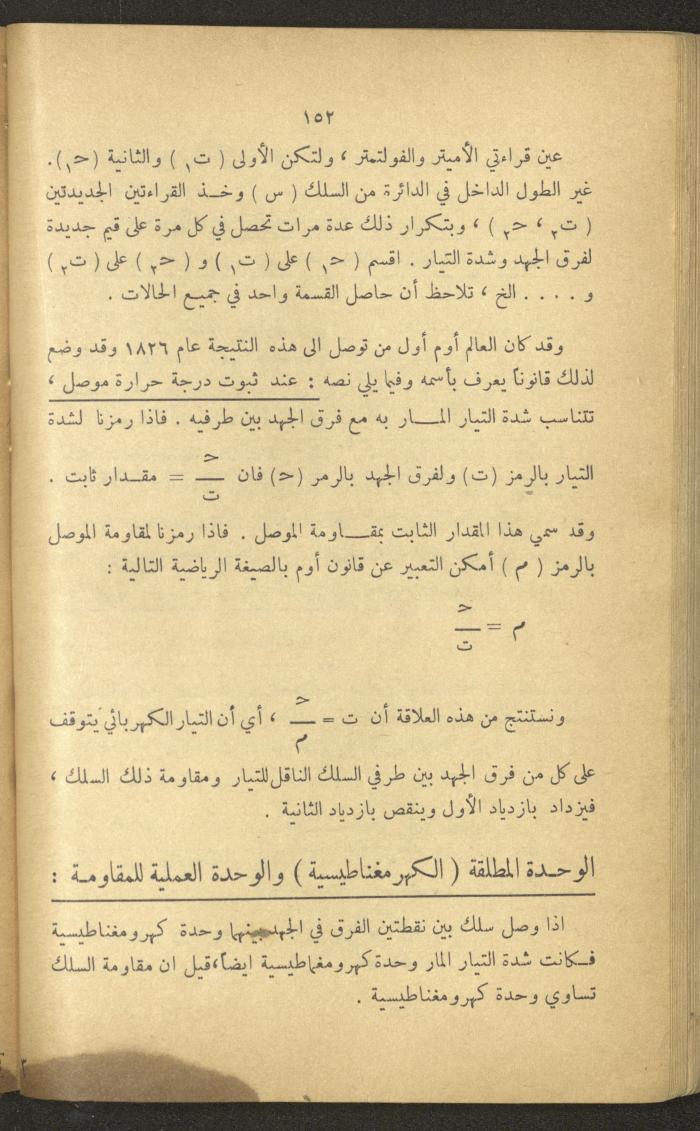 ١٥٢
عين قراءتي الأميتر والفولتمتر ، ولتكن الأولى ( ت١ ) والثانية ( ح١ ).
غير الطول الداخل في الدائرة من السلك ( س ) وخـذ القراءتين الجديدتين
( ت٢ ، ح٢ ) ، وبتكرار ذلك عدة مرات تحصل في كل مرة على قيم جديدة
لفرق الجهد وشدة التيار . اقسم ( ح١ ) على ( ت١ ) و ( ح٢ ) على ( ت٢ )
و . . . . الخ ، تلاحظ أن حاصل القسمة واحد في جميع الحالات .
وقد كان العالم أوم أول من توصل الى هذه النتيجة عام ١٨٢٦ وقد وضع
لذلك قانوناً يعرف بأسمه وفيما يلي نصه : عند ثبوت درجة حرارة موصل ،
تتناسب شدة التيار المـــار به مع فرق الجهد بين طرفيه . فاذا رمزنا لشدة
التيار بالرمز (ت) ولفرق الجهد بالرمر (ح) فان ح/ت = مقـدار ثابت .
وقد سمي هذا المقدار الثابت بمقـــاومة الموصل . فاذا رمزنا لمقاومة الموصل
بالرمز ( م ) أمكن التعبير عن قانون أوم بالصيغة الرياضية التالية :
م = ح/ت
ونستنتج من هذه العلاقة أن ت = ح/م ، أي أن التيار الكهربائي يتوقف
على كل من فرق الجهد بين طرفي السلك الناقل للتيار ومقاومة ذلك السلك ،
فيزداد بازدياد الأول وينقص بازدياد الثانية .
الوحـدة المطلقة ( الكهرمغناطيسية ) والوحدة العملية للمقاومـة :
اذا وصل سلك بين نقطتين الفرق في الجهد بينهما وحدة كهرومغناطيسية
فـكانت شدة التيار المار وحدة كهرومغناطيسية ايضاً،قيل ان مقاومة السلك
تساوي وحدة كهرومغناطيسية .